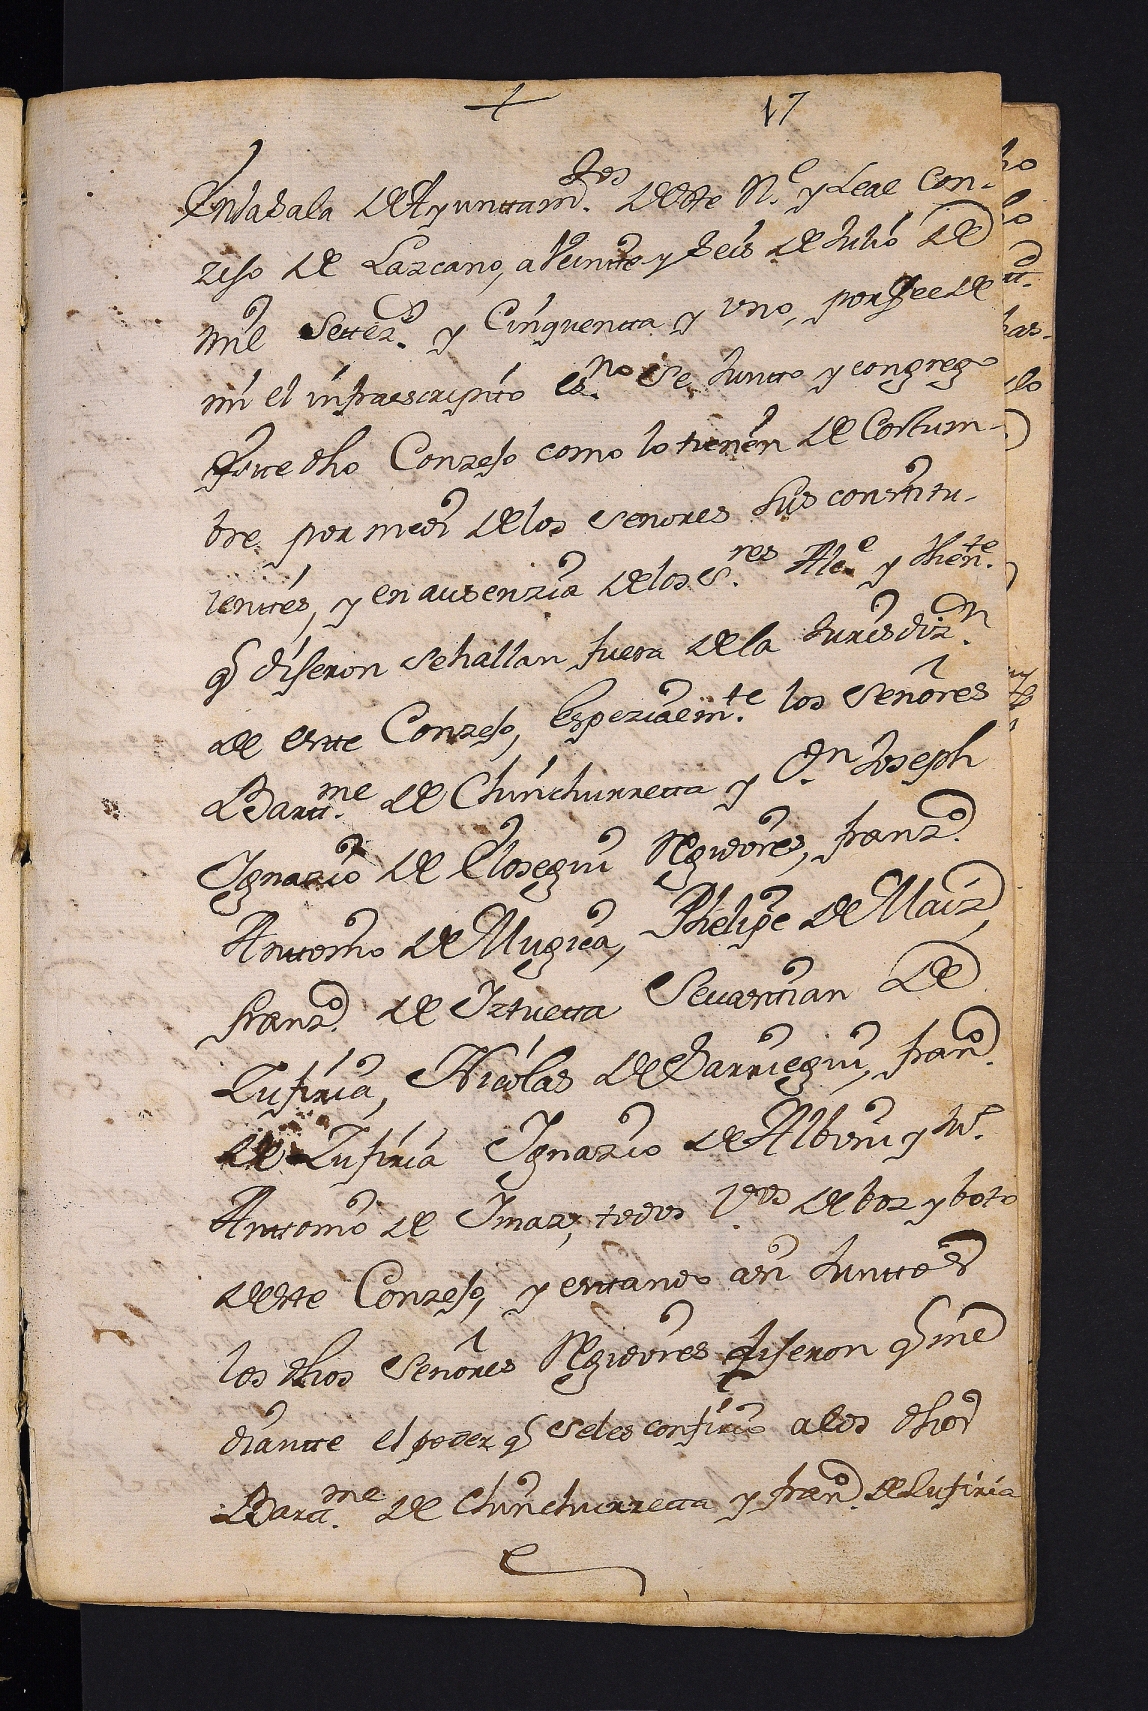 + 17
En la Sala de Ayunttam.tos de este N.e y Leal Con-
zejo de Lazcano, a Veintte y Seis de Julio de
mil Settez.s y Cinquentta y uno, por fee de
mi el infraescripto es.no se Juntto y congrego
este dho Conzejo como lo tienen de Costum-
bre por medio de los Señores Sus constitu-
ienttes, y en ausenzia de los S.res Al.e y Thien.te
q dijeron se hallan fuera de la Jurisdiz.n
de estte Conzejo, Espezialm.te los Señores
Bartt.me de Chinchurretta y D.n Joseph
Ignazio de Elosegui Regidores, franz.o
Anttonio de Mugica, Phelipe de Maiz,
franz.o de Iztuetta Sevasttian de
Lufiria, Nicolas de Barriegui, fran.o
de Lufiria Ignazio de Albisu y Ju.n
Anttonio de Imaz, todos V.os de boz y boto
de este Conzejo, y esttando asi Junttos
los dhos Señores Regidores dijeron q me
diantte el poder q se les confirio a los dhos
Bartt.me de Chinchurretta y fran.o de Lufiria